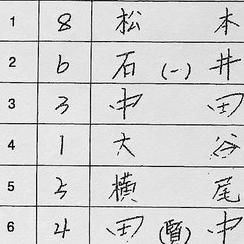 1 8 松本
2 6 石(一)井
3 3 中田
4 1 大谷
5 5 横尾
6 4 田(賢)中